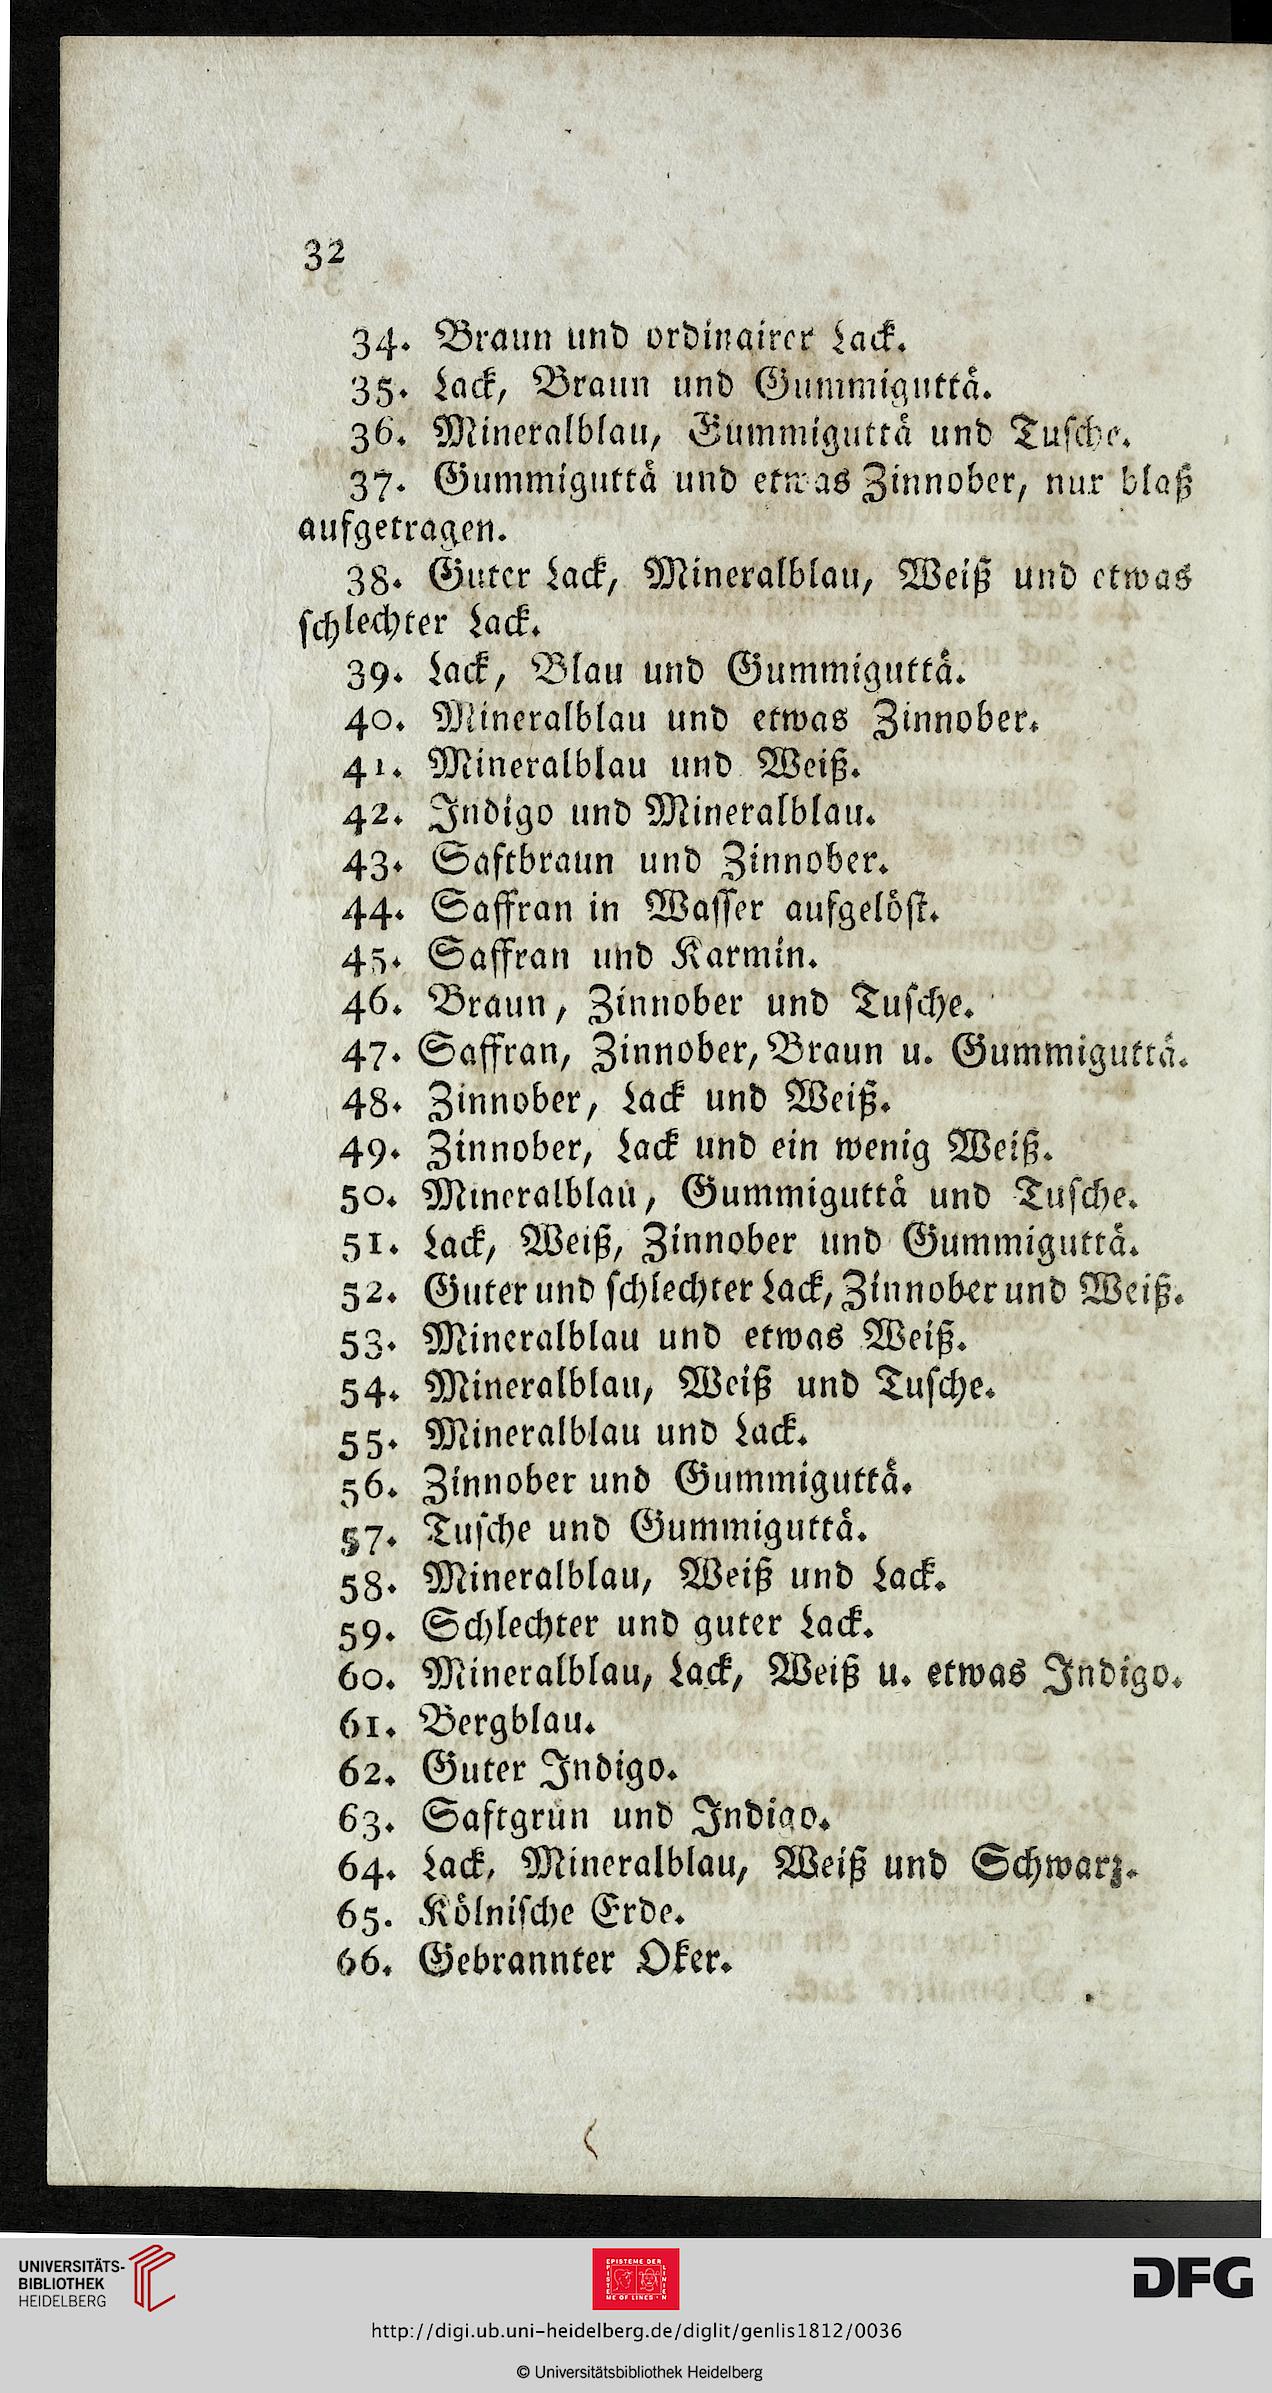 32
34. Braun und ordinairer Lack.
35. Lack, Braun und Gummiguttä.
36. Mineralblau, Gummiguttä und Tusche.
37. Gummiguttä und etwas Zinnober, nur blaß
aufgetragen.
38. Guter Lack, Mineralblau, Weiß und etwas
schlechter Lack.
39. Lack, Blau und Gummiguttä.
40. Mineralblau und etwas Zinnober.
41. Mineralblau und Weiß.
42. Indigo und Mineralblau.
43. Saftbraun und Zinnober.
44. Saffran in Wasser aufgelöst.
45. Saffran und Karmin.
46. Braun, Zinnober und Tusche.
47. Saffran, Zinnober, Braun u. Gummiguttä.
48. Zinnober, Lack und Weiß.
49. Zinnober, Lack und ein wenig Weiß.
50. Mineralblau, Gummiguttä und Tusche.
51. Lack, Weiß, Zinnober und Gummiguttä.
52. Guter und schlechter Lack, Zinnober und Weiß.
53. Mineralblau und etwas Weiß.
54. Mineralblau, Weiß und Tusche.
55. Mineralblau und Lack.
56. Zinnober und Gummiguttä.
57. Tusche und Gummiguttä.
58. Mineralblau, Weiß und Lack.
59. Schlechter und guter Lack.
60. Mineralblau, Lack, Weiß u. etwas Indigo.
61. Bergblau.
62. Guter Indigo.
63. Saftgrün und Indigo.
64. Lack, Mineralblau, Weiß und Schwarz.
65. Kölnische Erde.
66. Gebrannter Oker.
UNIVERSITÄTS-
BIBLIOTHEK
HEIDELBERG
EPISTEME DER
LINIEN
EPISTE
ME OF LINES
DFG
http://digi.ub.uni-heidelberg.de/diglit/genlis1812/0036
© Universitätsbibliothek Heidelberg